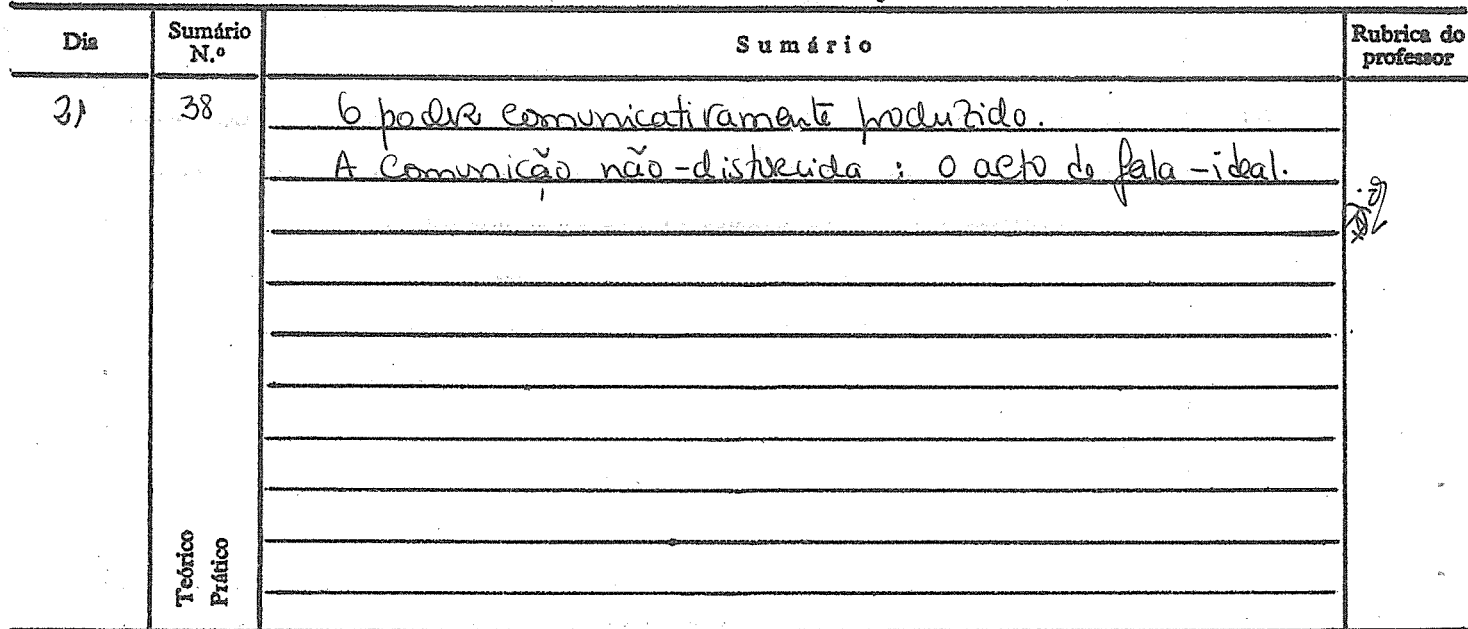 Dia Sumário N.º Sumário Rubrica do professor
38 O poder comunicativamente produzido.
A Comunicão não-distorcida : o acto de fala-ideal.
Teórico
Prático